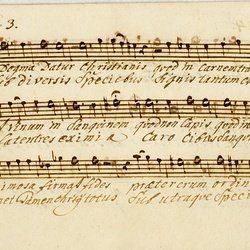 3.
Dogma Datur Christianis quod in Carnem tran
Sub diversis Speciebus Signis tantum e
Et vinum in Sanguinem quod non Capis quod non
Latent res eximiæ Caro Cibus Sangu
imosa firmat fides præter rerum or di
net Tamen Christus totus Sub utraque Speci